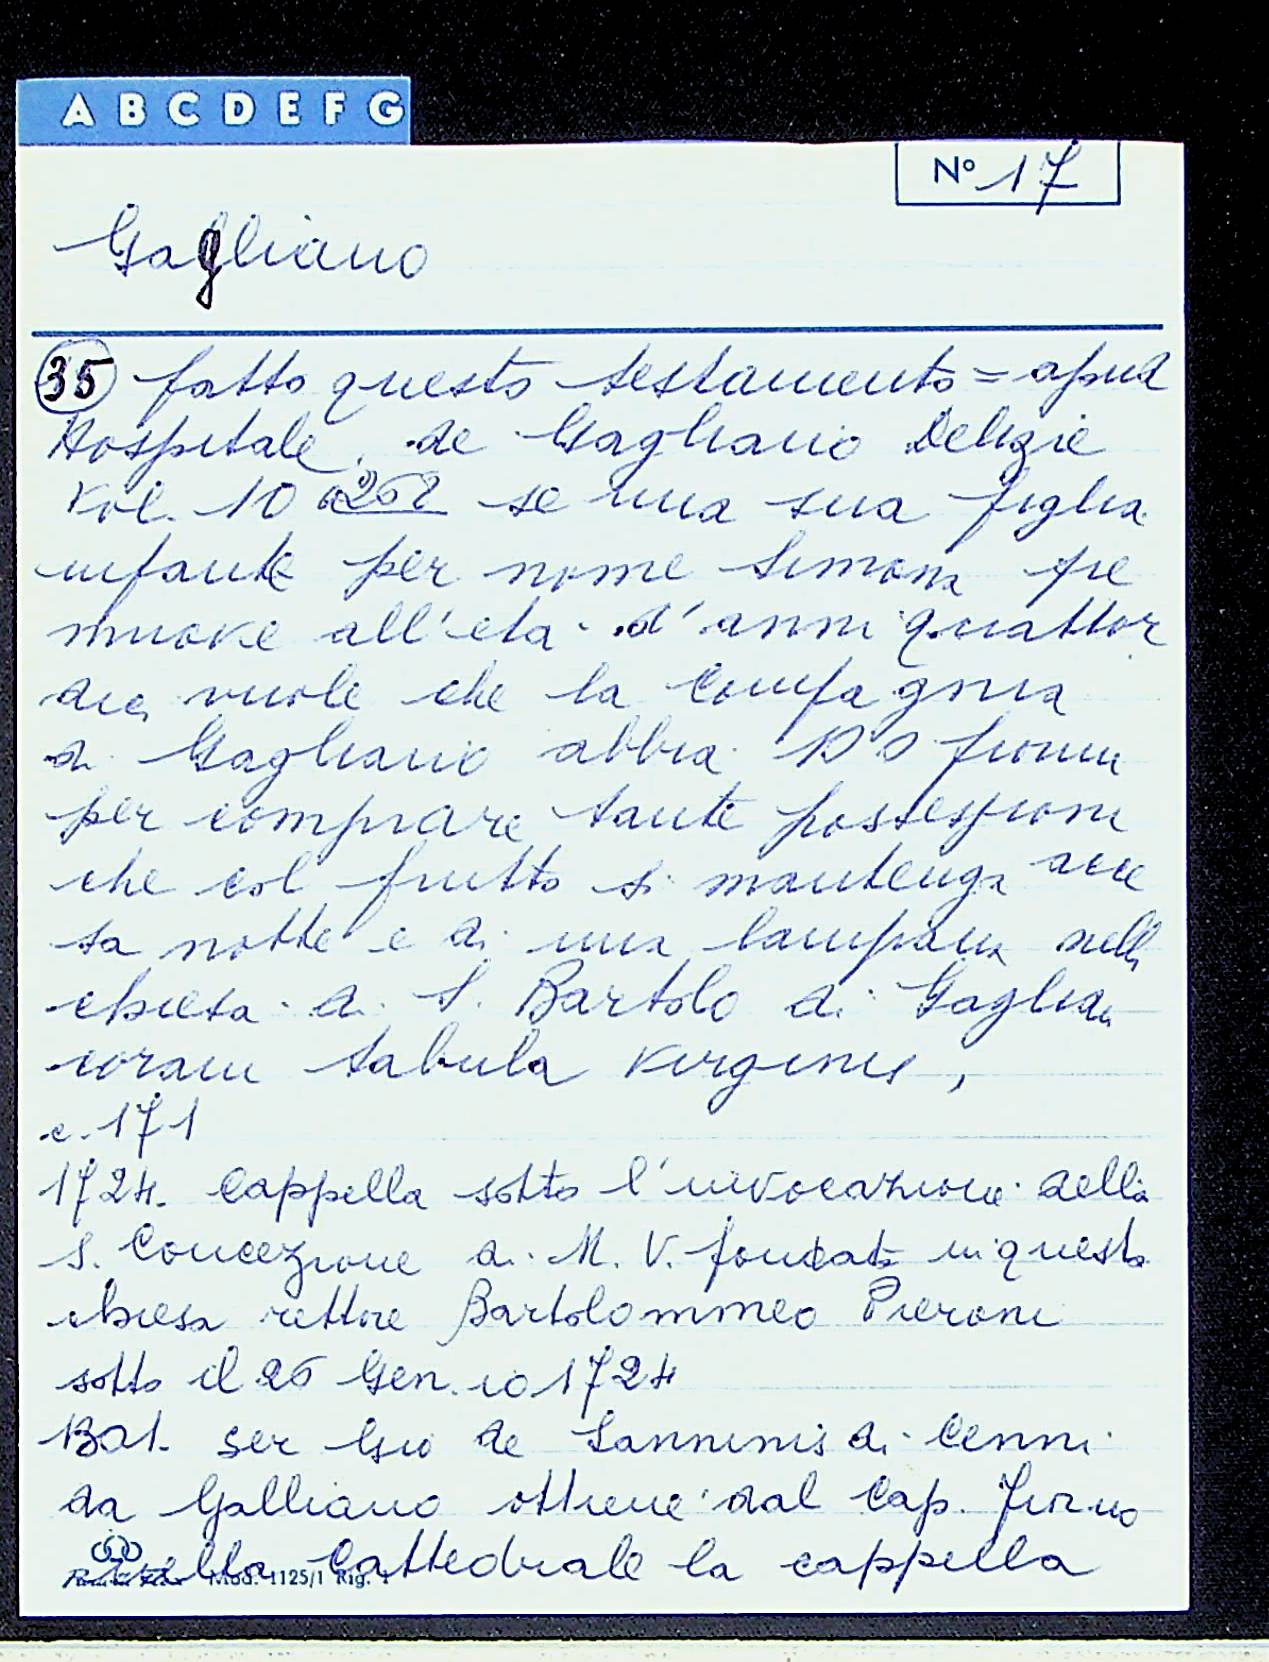 A B C D E F G
N° 17
Gagliano
35 fatto questo testamento = apud
Hospitale de Gagliano Delizie
Vol. 10 262 se una sua figlia
infante per nome Simona pre
muore all'eta d'anni quattor
dici vuole che la Compagnia
di Gagliano abbia fiorini
per comprare tante possessioni
che col frutto si mantenga acce
sa notte e di una lampana nella
chiesa di S. Bartolo di Gagliano
coram tabula Virginis,
c. 171
1724. Cappella sotto l'invocazione della
S. Concezione di M. V. fondata in questa
chiesa rettore Bartolommeo Pieroni
sotto il 26 Gen.io 1724
ser Gio de di Cenni
da Galliano ottiene dal Cap. Fior.no
della Cattedrale la cappella
Mod. 1125/1 Rig. 1